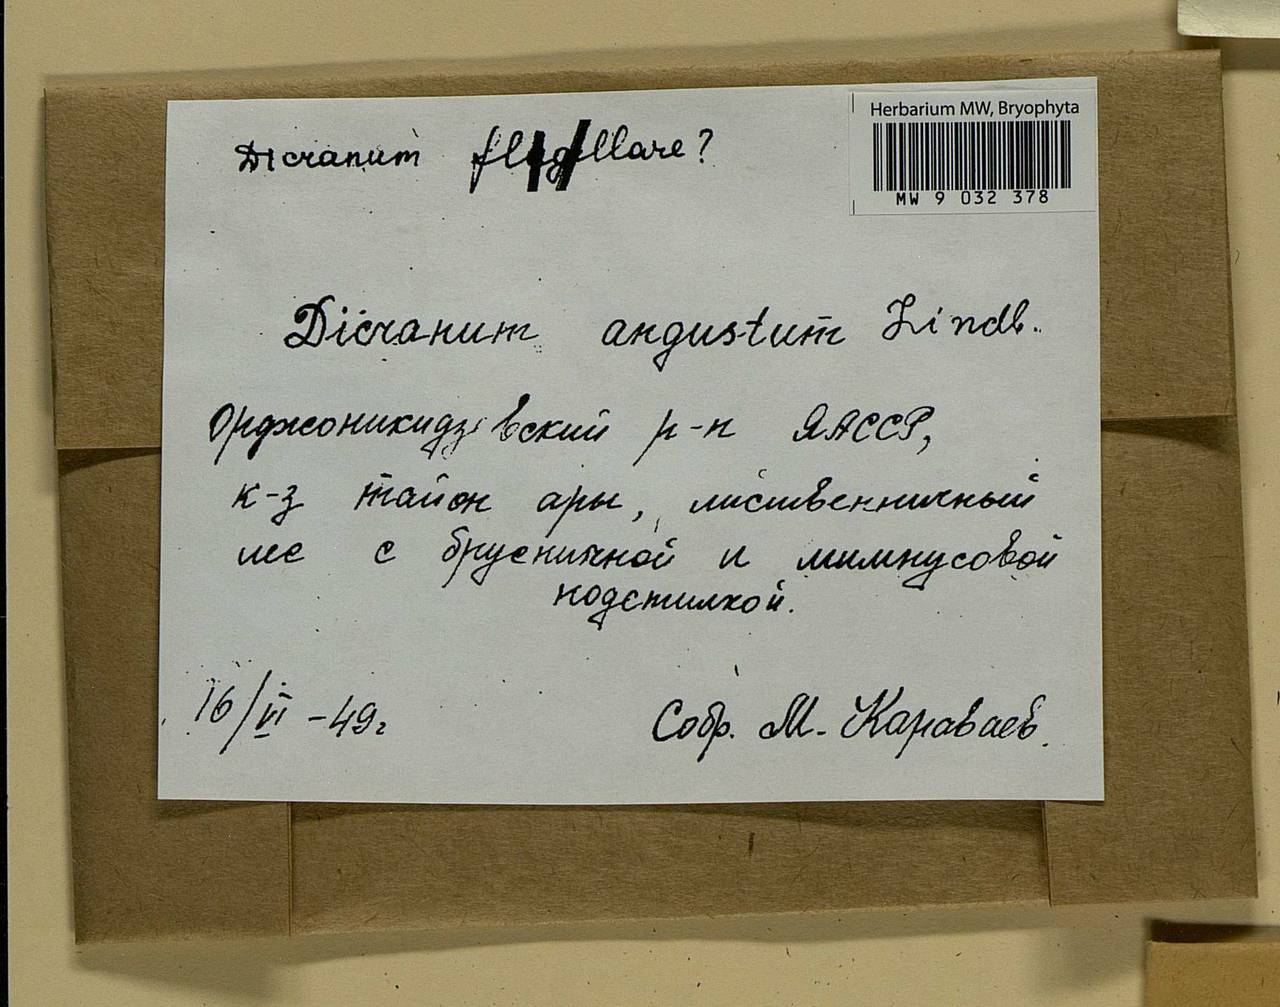 Herbarium MW, Bryophyta
MW 9 032 378
Dicranum flagellare?
Dicranum angustum Lindb.
Орджоникидзевский р-н ЯАССР,
к-з тайон ары, лиственничный
лес с брусничной и мимнусовой
подстилкой.
16/VI -49г
Собр. М. Караваев.